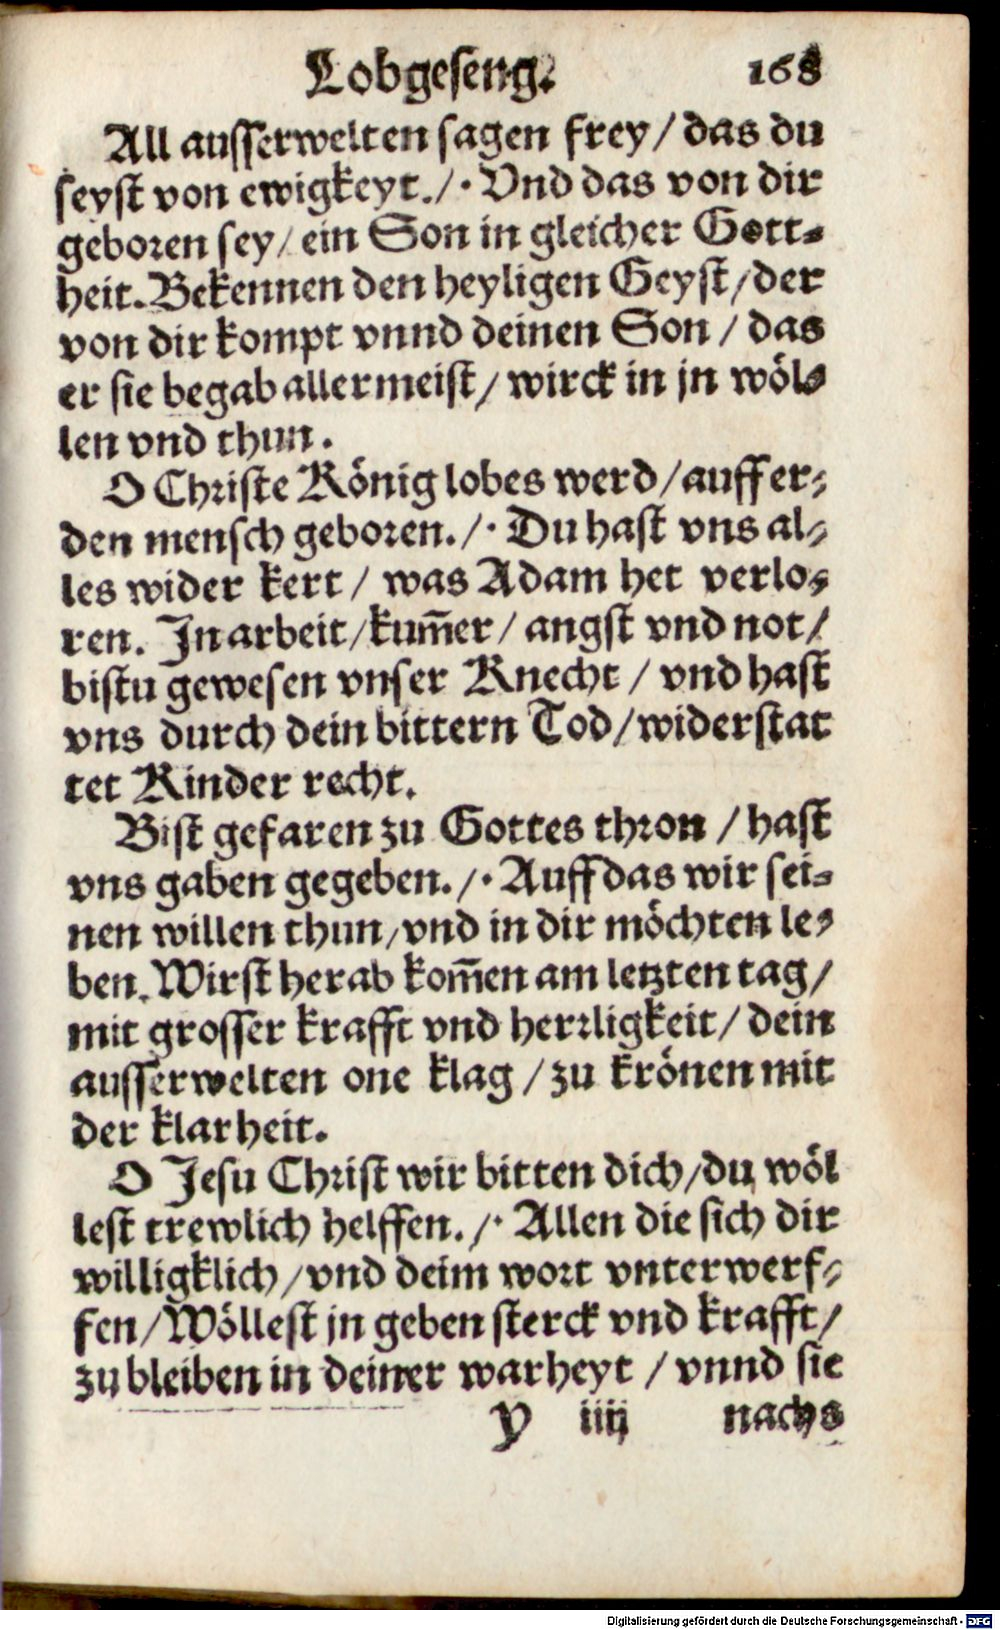 Lobgeseng. 168
All ausserwelten sagen frey / das du
seyst von ewigkeyt. /. Vnd das von dir
geboren sey / ein Son in gleicher Gott-
heit. Bekennen den heyligen Geyst / der
von dir kompt vnnd deinen Son / das
er sie begab allermeist / wirck in jn wöl-
len vnd thun.
O Christe König lobes werd / auff er-
den mensch geboren. /. Du hast vns al-
les wider kert / was Adam het verlo-
ren. In arbeit / kum̄er / angst vnd not /
bistu gewesen vnser Knecht / vnd hast
vns durch dein bittern Tod / widerstat
tet Kinder recht.
Bist gefaren zu Gottes thron / hast
vns gaben gegeben. /. Auff das wir sei-
nen willen thun / vnd in dir möchten le-
ben. Wirst herab kom̄en am letzten tag /
mit grosser krafft vnd herrligkeit / dein
ausserwelten one klag / zu krönen mit
der klarheit.
O Jesu Christ wir bitten dich / du wöl
lest trewlich helffen. /. Allen die sich dir
willigklich / vnd deim wort vnterwerf-
fen / Wöllest jn geben sterck vnd krafft /
zu bleiben in deiner warheyt / vnnd sie
y iiij nachs
Digitalisierung gefördert durch die Deutsche Forschungsgemeinschaft - DFG